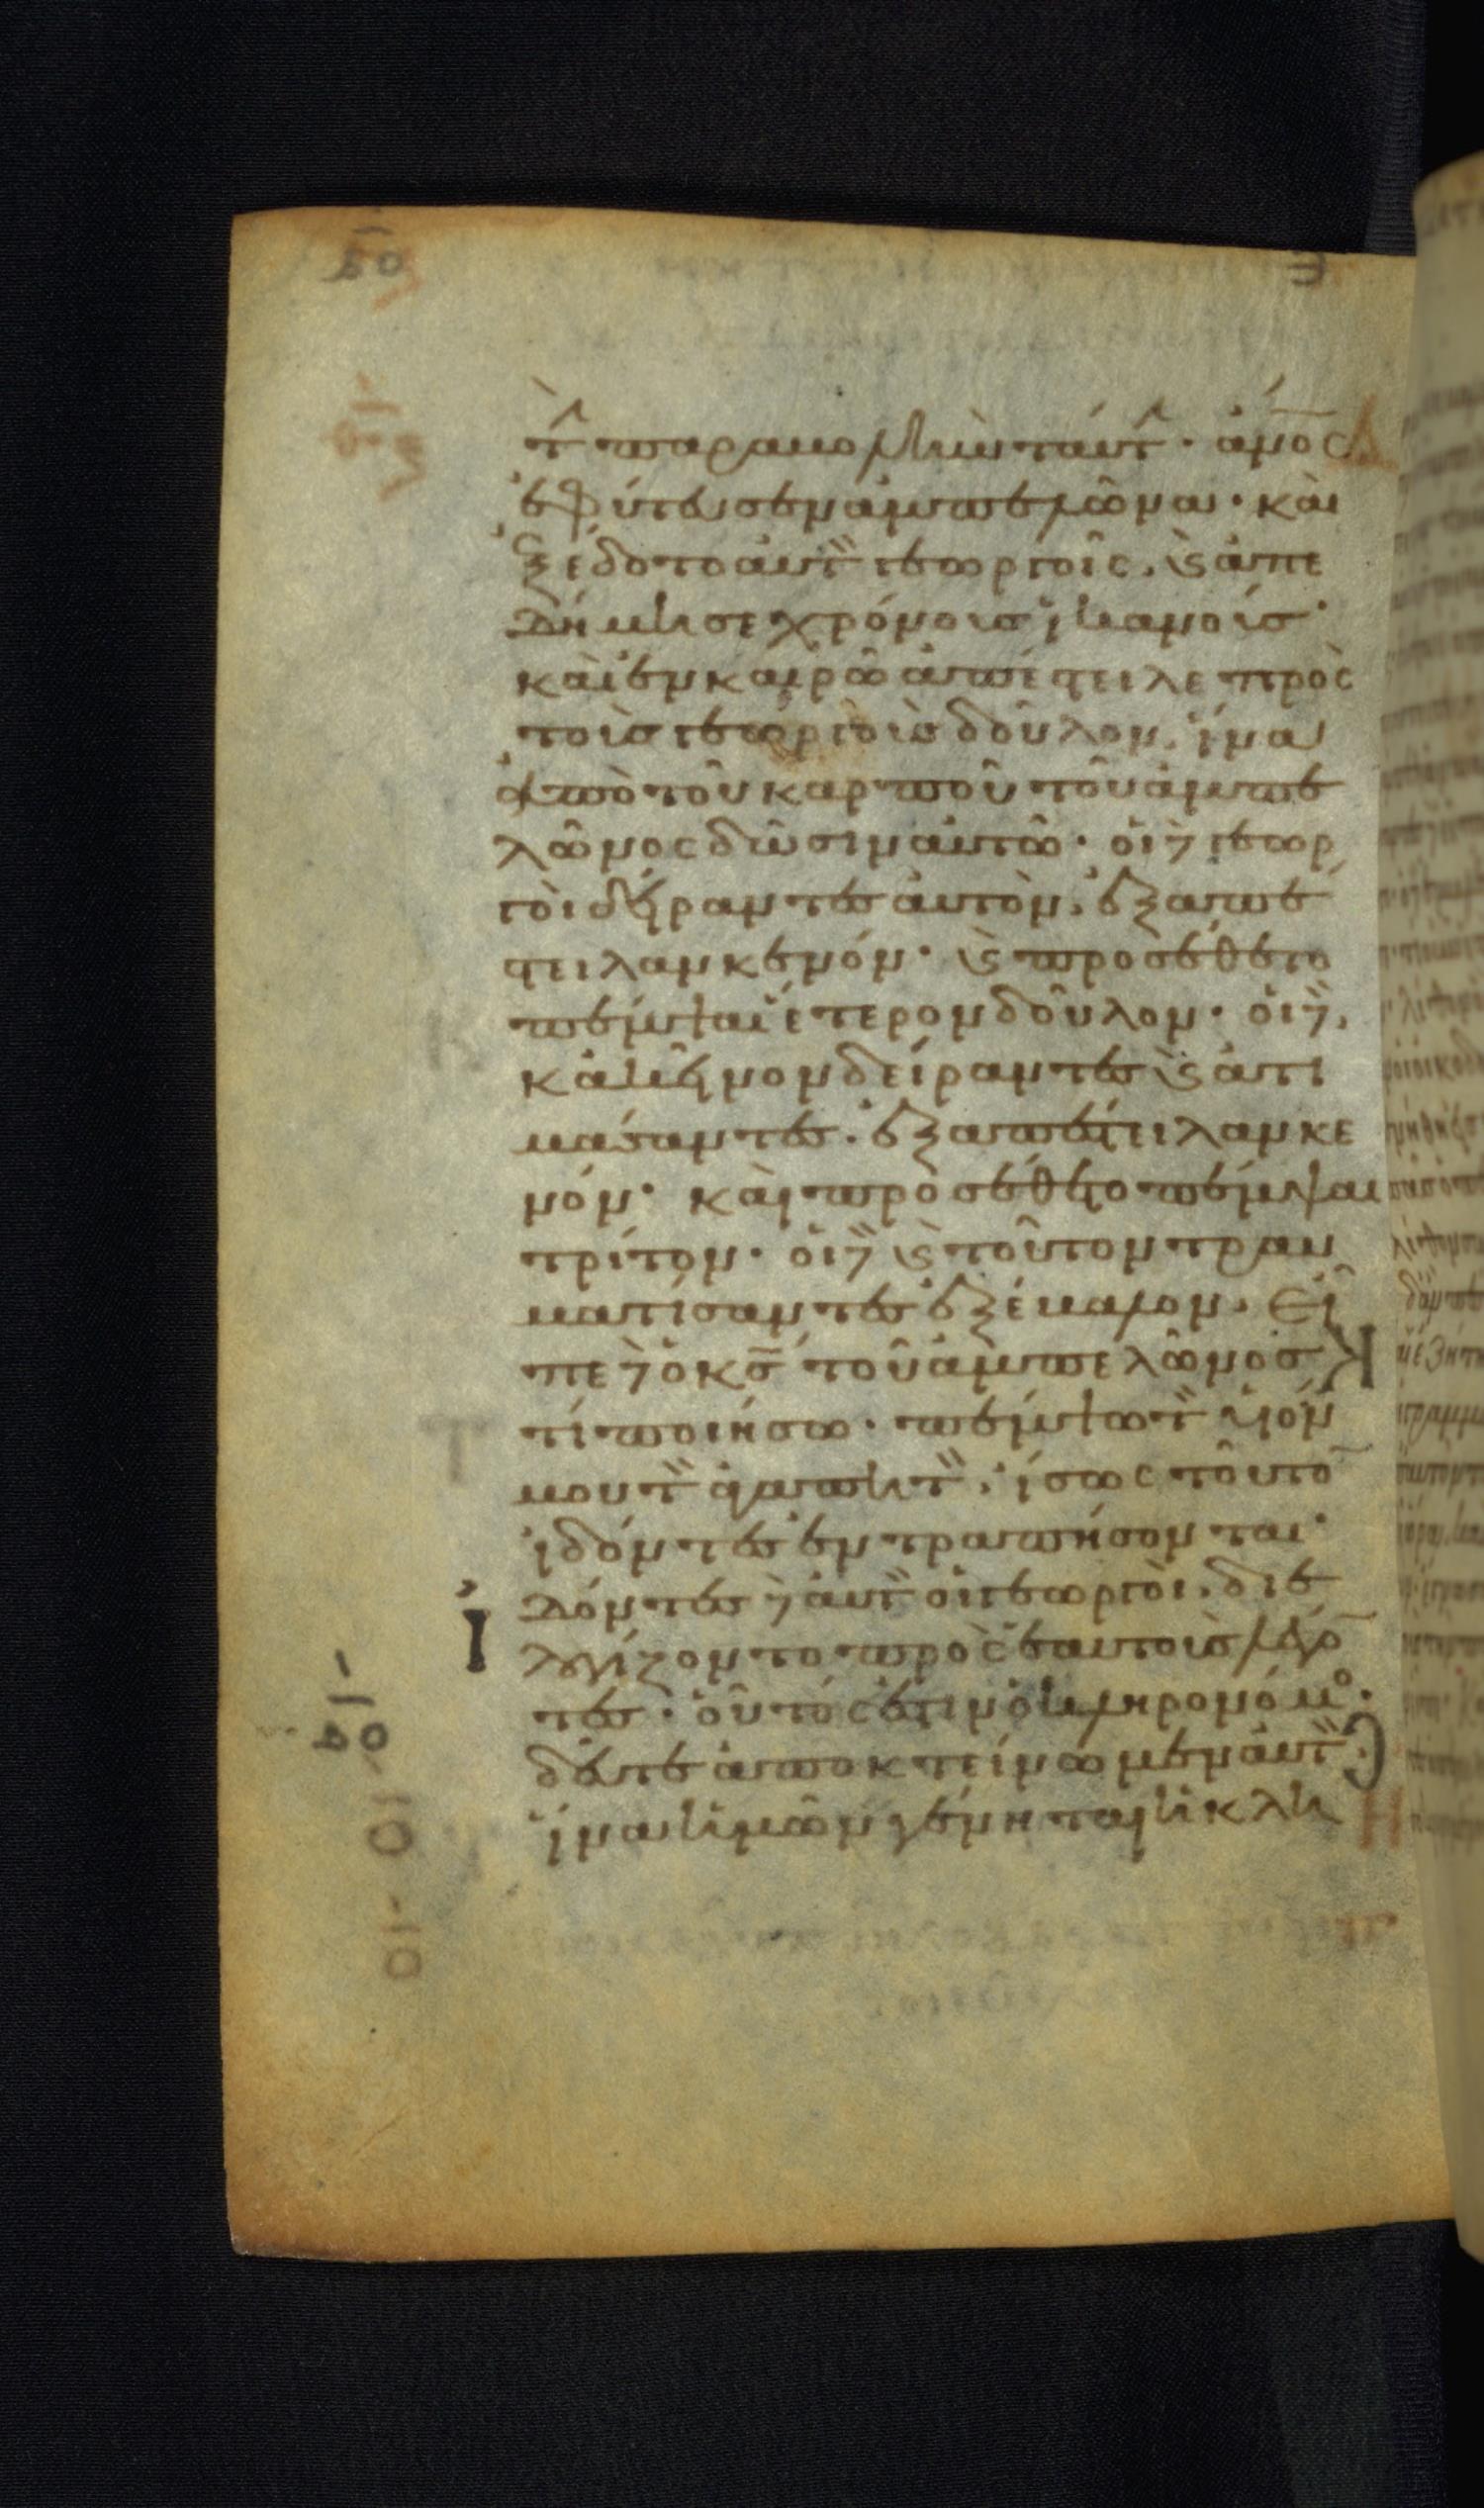 τ̂ παραβολὴν ταύτ̂· ἄν̅ος
ἐφύτευσεν ἀμπελῶνα· καὶ
ἐξέδοτο αὐτ̏ γεωργοῖς. ϗ ἀπε
δήμησε χρόνους ἱκανούς·
καὶ ἐν καιρῶ ἀπέστειλε πρὸς
τοὺς γεωργοὺς δοῦλον. ἵνα
ἀπὸ τοῦ καρποῦ τοῦ ἀμπε
λῶνος δῶσιν αὐτῶ· οἱ δὲ γεωρ
γοὶ δείραντες αὐτὸν. ἐξαπέ
στειλαν κενόν· ϗ προσέθετο
πέμψαι ἕτερον δοῦλον· οἱ δὲ.
κἀκεῖνον δείραντες ϗ ἀτι
μάσαντες. ἐξαπέστειλαν κε
νόν· καὶ προσέθετο πέμψαι
τρίτον· οἱ δὲ ϗ τοῦτον τραυ
ματίσαντες ἐξέβαλον. Εἶ
πε δὲ ὁ κ̅ς̅ τοῦ ἀμπελῶνος
τί ποιήσω· πέμψω τ̏ υἱόν
μου τ̏ ἀγαπητ̏. ἴσως τοῦτο̅
ἰδόντες ἐντραπήσονται·
Ἰ δόντες δὲ αὐτ̏ οἱ γεωργοὶ. διε
λογίζοντο πρὸς ἑαυτοὺς λέγο̅
τες· οὗτός ἐστιν ὁ κληρονόμο·
δεῦτε ἀποκτείνωμεν αὐτ̏.
ἵνα ἡμῶν γένηται ἡ κλη